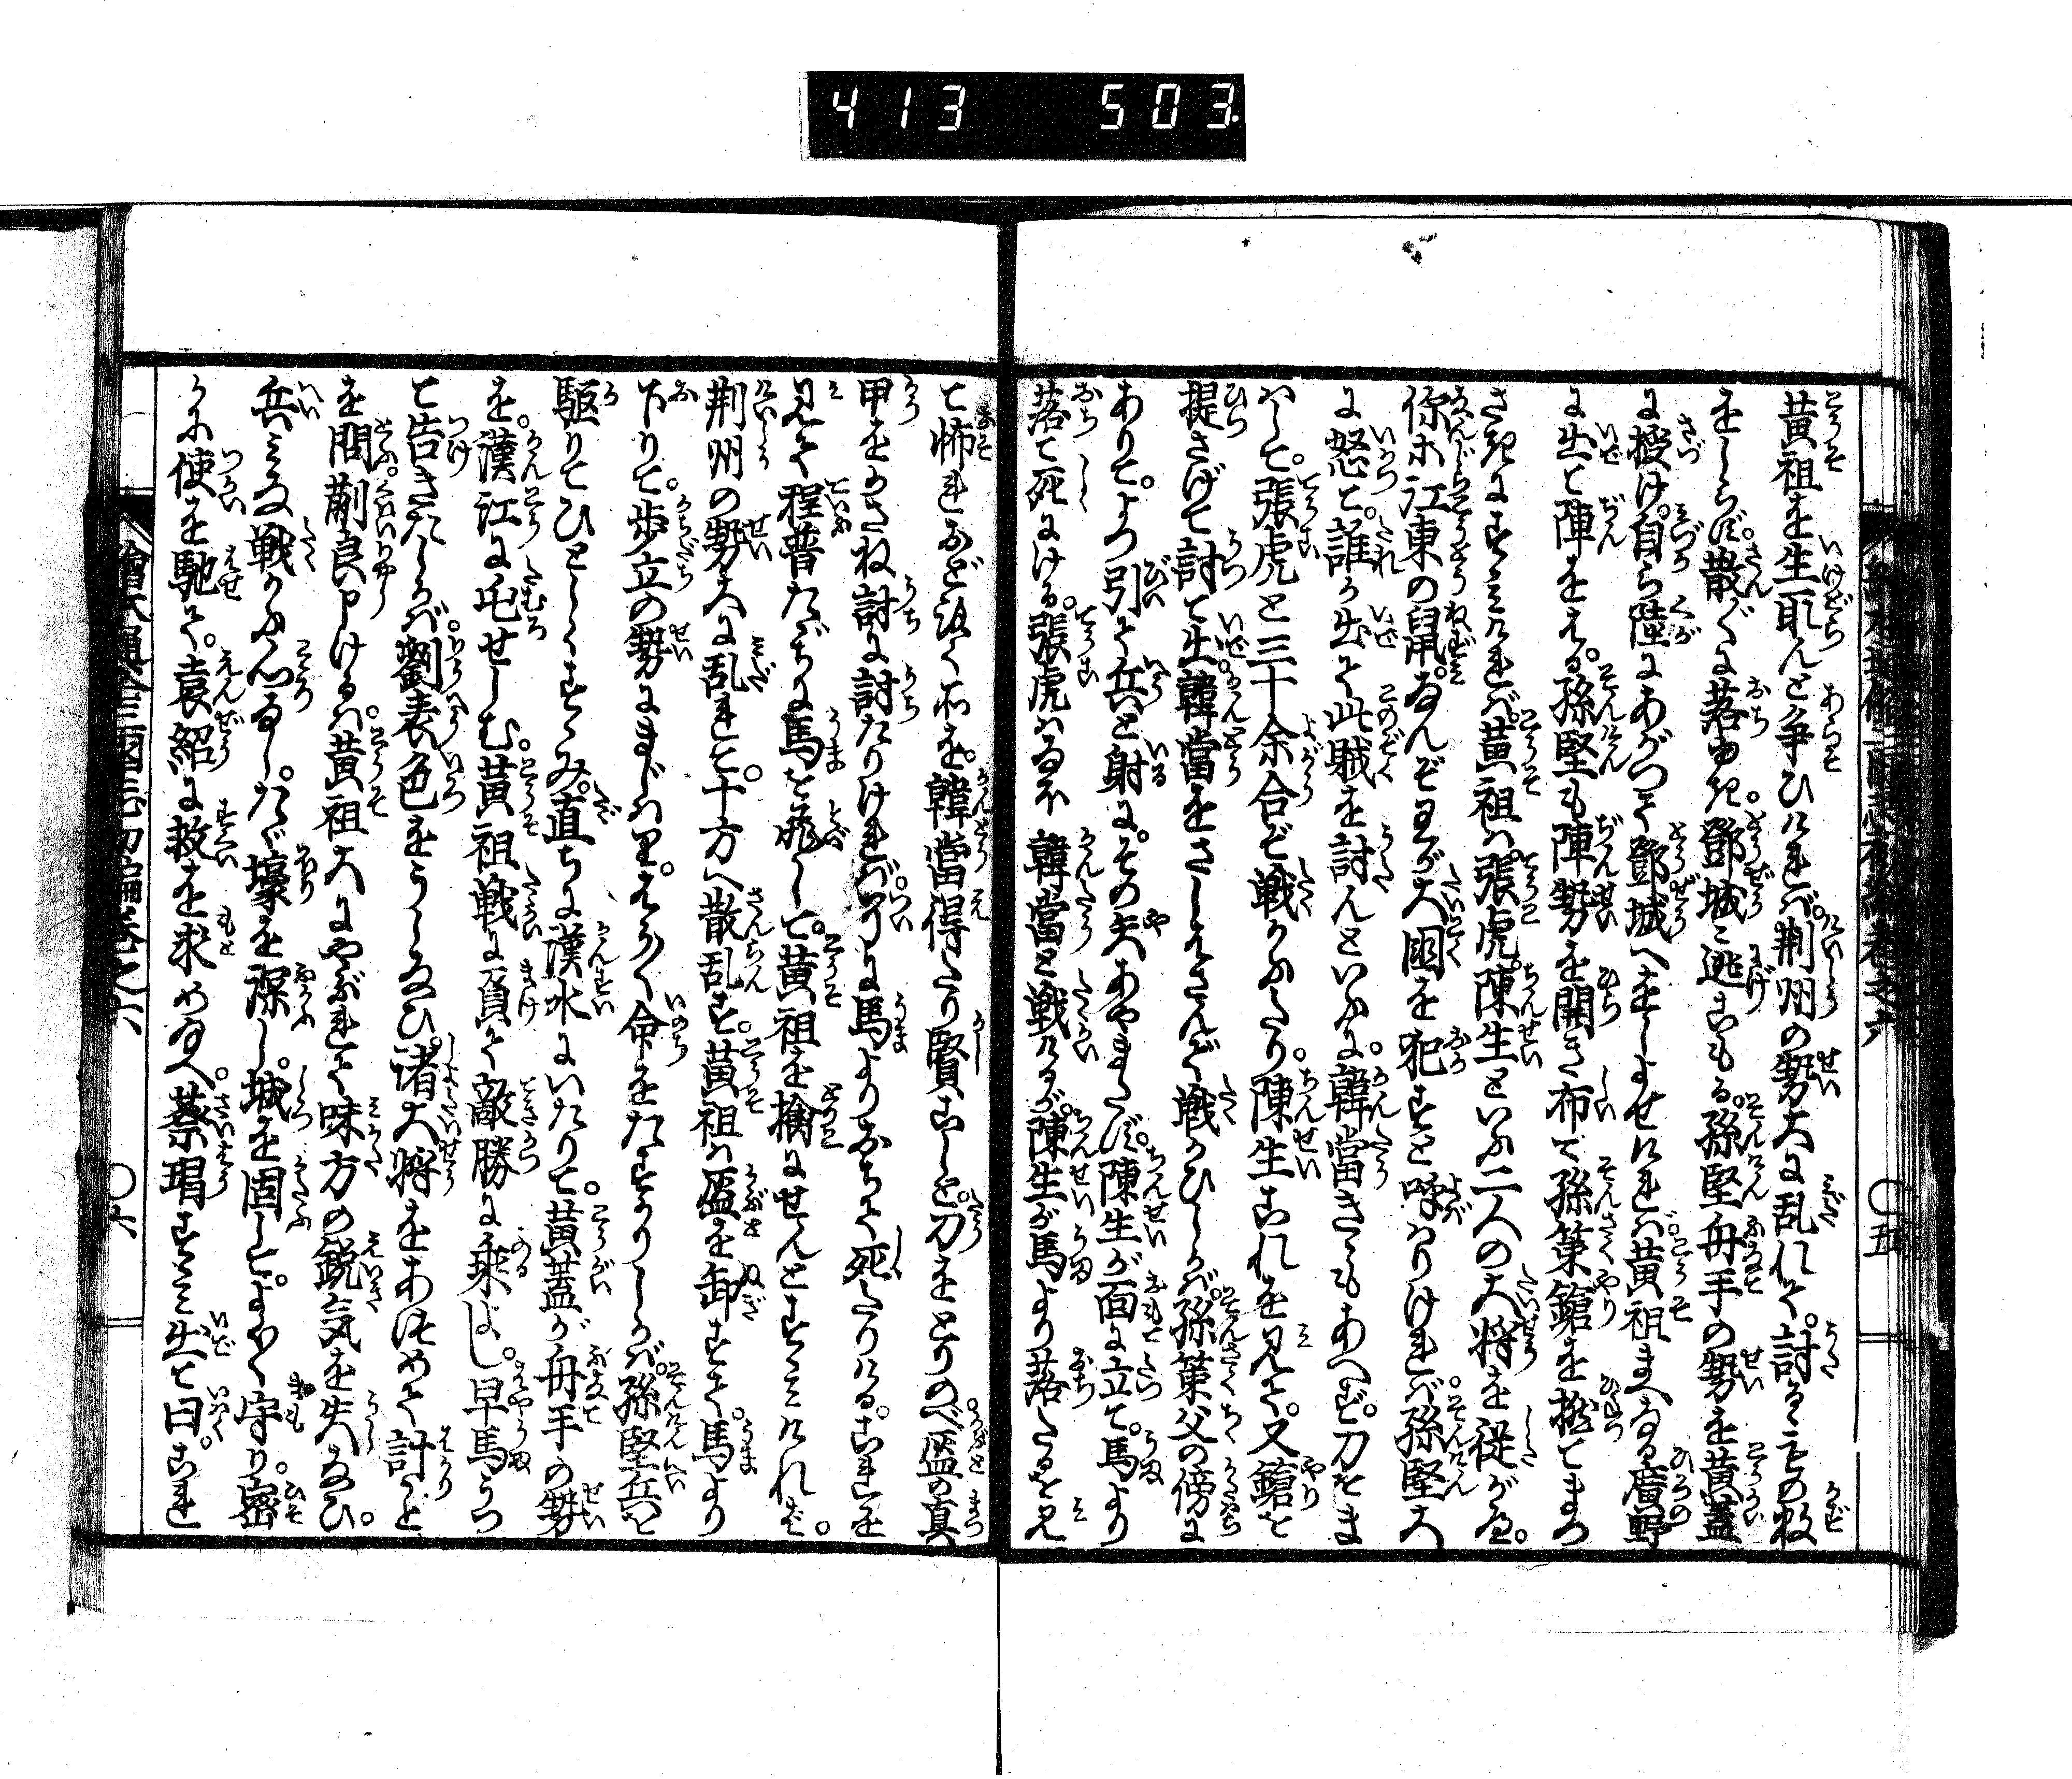 413 503.
黄祖を生取んと争ひければ。荊州の勢大に乱れて。討るゝもの数
をしらず。散々に落ゆき。鄧城に逃こもる。孫堅舟手の勢を黄蓋
に授け。自ら陸にあがつて鄧城へをしよせければ。黄祖まへなる廣野
に出て陣をとる。孫堅も陣勢を開き布て孫策鎗を挺てまつ
さきにすゝみければ。黄祖は。張虎。陳生といふ二人の大将を従がへ。
你ホ江東の鼠。なんぞわが大国を犯すと呼はりければ。孫堅大
に怒て。誰か出て此賊を討んといふに。韓當きゝもあへず。刀をま
はして。張虎と三十余合ぞ戦かふたり。陳生これを見て。又鎗を
提さげて討て出。韓當をさしはさんで戦かひしかば。孫策父の傍に
ありて。よつ引て兵と射に。その矢あやまたず。陳生が面に立て。馬より
落て死にける。張虎はなほ韓當と戦けるが。陳生が馬より落たるを見
て怖れなど返く所を。韓當得たり賢こしと。刀をとりのべ盔の真
甲をかさね討に討たりければ。つゐに馬よりおちて死たりける。これを
見て程普たゞちに馬を飛して。黄祖を擒にせんとすゝみければ。
荊州の勢大に乱れて。十方へ散乱す。黄祖は盔を卸すて。馬より
下りて。歩立の勢にまじはり。はうく命をたすかりしかば。孫堅兵を
駆りてひとしくすゝみ。直ちに漢水にいたりて。黄蓋が舟手の勢
を。漢江に屯せしむ。黄祖戦に負て敵勝に乗しよし。早馬うつ
て告きたりしかば。劉表色をうしなひ。諸大将をあつめて計ごと
を問。蒯良申けるは。黄祖大にやぶれて味方の鋭気を失なひ。
兵みな戦かふ心なし。たゞ壕を深し。城を固して。よく守り。密
かに使を馳て。袁紹に救を求めなへ。蔡瑁すゝみ出て曰。これ
繪本通俗三國志初編巻之六
〇五
〇六